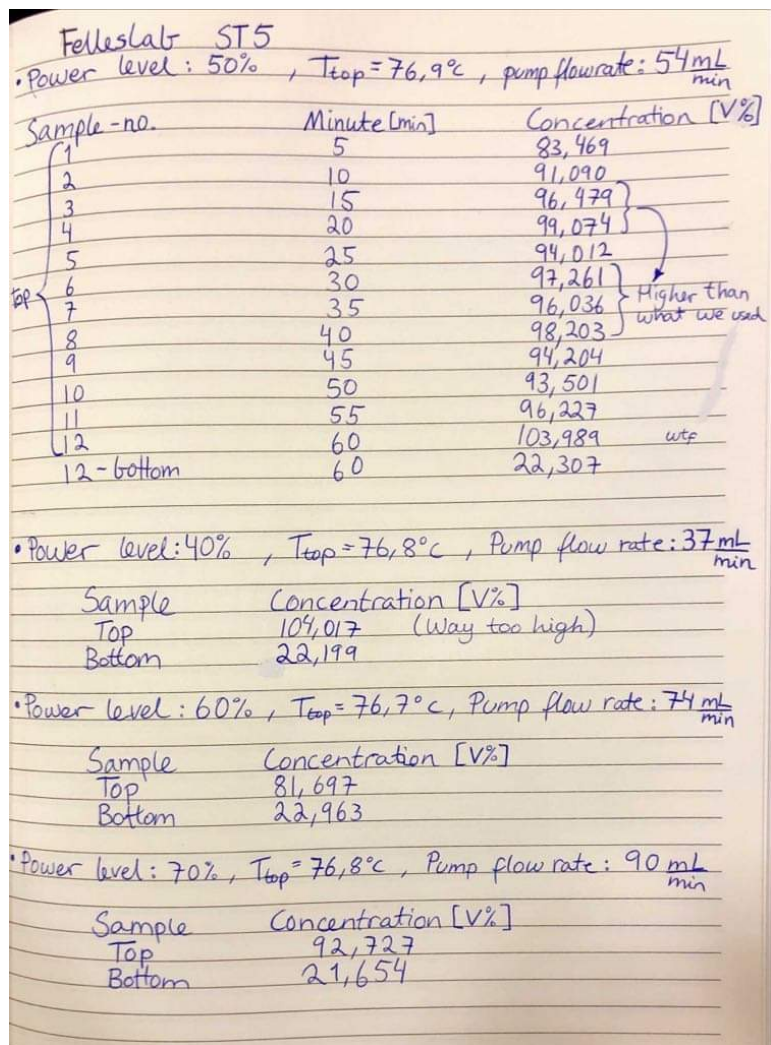 Felleslab ST5
• Power level: 50%, Ttop = 76,9°C, pump flowrate: 54 mL/min
Sample-no. Minute [min] Concentration [V%]
1 5 83,469
2 10 91,090
3 15 96,479
4 20 99,074
5 25 94,012
6 30 97,261
top 7 35 96,036 Higher than what we used
8 40 98,203
9 45 94,204
10 50 93,501
11 55 96,227
12 60 103,989 wtf
12-bottom 60 22,307
• Power level: 40%, Ttop = 76,8°C, Pump flow rate: 37 mL/min
Sample Concentration [V%]
Top 104,017 (Way too high)
Bottom 22,199
• Power level: 60%, Ttop = 76,7°C, Pump flow rate: 74 mL/min
Sample Concentration [V%]
Top 81,697
Bottom 22,963
• Power level: 70%, Ttop = 76,8°C, Pump flow rate: 90 mL/min
Sample Concentration [V%]
Top 92,727
Bottom 21,654